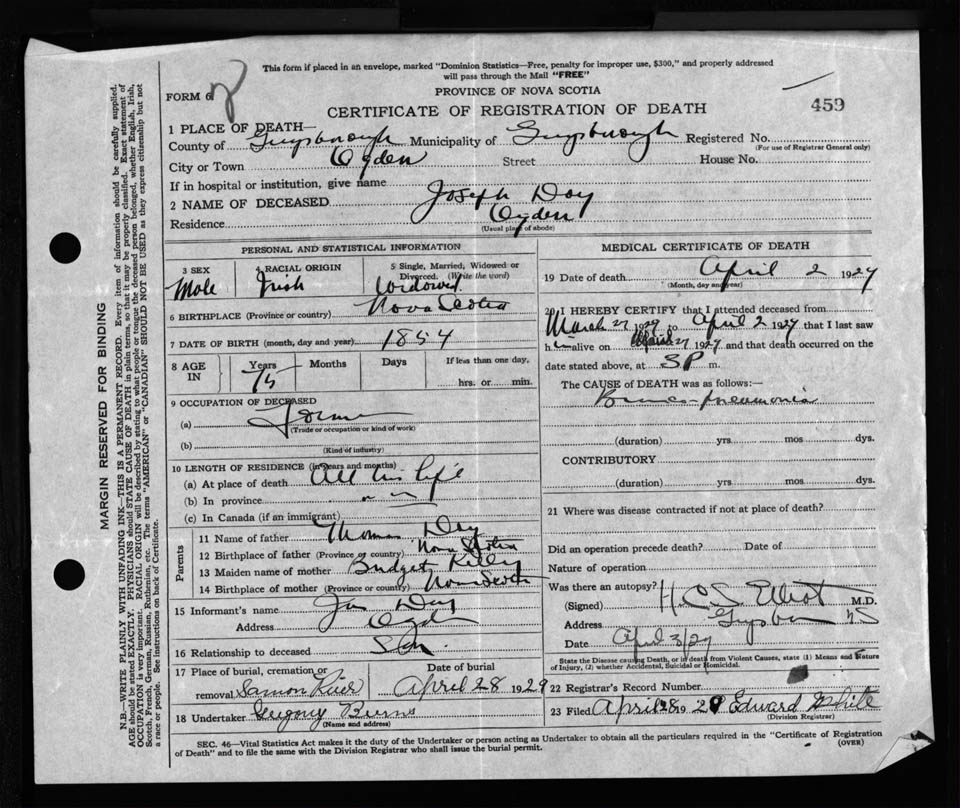 This form if placed in an envelope, marked "Dominion Statistics—Free, penalty for improper use, $300," and properly addressed
will pass through the Mail "FREE"
FORM 6
PROVINCE OF NOVA SCOTIA
CERTIFICATE OF REGISTRATION OF DEATH
459
1 PLACE OF DEATH—
County of Guysborough Municipality of Guysborough Registered No.
(For use of Registrar General only)
City or Town Ogden Street House No.
If in hospital or institution, give name
2 NAME OF DECEASED Joseph Day
Residence Ogden
(Usual place of abode)
PERSONAL AND STATISTICAL INFORMATION
3 SEX Male
4 RACIAL ORIGIN Irish
5 Single, Married, Widowed or Divorced. (Write the word) Widowed
6 BIRTHPLACE (Province or country) Nova Scotia
7 DATE OF BIRTH (month, day and year) 1854
8 AGE IN Years 75 Months Days If less than one day, hrs. or min.
9 OCCUPATION OF DECEASED
(a)
(Trade or occupation or kind of work)
(b)
(Kind of industry)
10 LENGTH OF RESIDENCE (in years and months)
(a) At place of death All his life
(b) In province " "
(c) In Canada (if an immigrant)
Parents
11 Name of father Thomas Day
12 Birthplace of father (Province or country) Nova Scotia
13 Maiden name of mother Bridget Kelley
14 Birthplace of mother (Province or country) Nova Scotia
15 Informant's name Jas Day
Address Ogden
16 Relationship to deceased Son
17 Place of burial, cremation or removal Samon River Date of burial April 28 1929
18 Undertaker Gregory Burns
(Name and address)
MEDICAL CERTIFICATE OF DEATH
19 Date of death April 2 1929
(Month, day and year)
20 I HEREBY CERTIFY that I attended deceased from
March 27 1929 to April 2 1929 that I last saw
him alive on March 27 1929 and that death occurred on the
date stated above, at 3P m.
The CAUSE of DEATH was as follows:—
Bronco-pneumonia
(duration) yrs mos dys.
CONTRIBUTORY
(duration) yrs. mos. dys.
21 Where was disease contracted if not at place of death?
Did an operation precede death? Date of
Nature of operation
Was there an autopsy?
(Signed) H. C. S. Elliot M.D.
Address NS
Date April 3/29
State the Disease causing Death, or in death from Violent Causes, state (1) Means and Nature
of Injury, (2) whether Accidental, Suicidal or Homicidal.
22 Registrar's Record Number
23 Filed April 28 1929 Edward White
(Division Registrar)
SEC. 46—Vital Statistics Act makes it the duty of the Undertaker or person acting as Undertaker to obtain all the particulars required in the "Certificate of Registration
of Death" and to file the same with the Division Registrar who shall issue the burial permit.
(OVER)
MARGIN RESERVED FOR BINDING
N.B.—WRITE PLAINLY WITH UNFADING INK—THIS IS A PERMANENT RECORD. Every item of information should be carefully supplied.
AGE should be stated EXACTLY. PHYSICIANS should STATE CAUSE OF DEATH in plain terms, so that it may be properly classified. Exact statement of
OCCUPATION is very important. RACIAL ORIGIN will be described by stating to what people or tongue the deceased person belonged, whether English, Irish,
Scotch, French, German, Russian, Ruthenian, etc. The terms "AMERICAN" or "CANADIAN" SHOULD NOT BE USED as they express citizenship but not
a race or people. See instructions on back of Certificate.